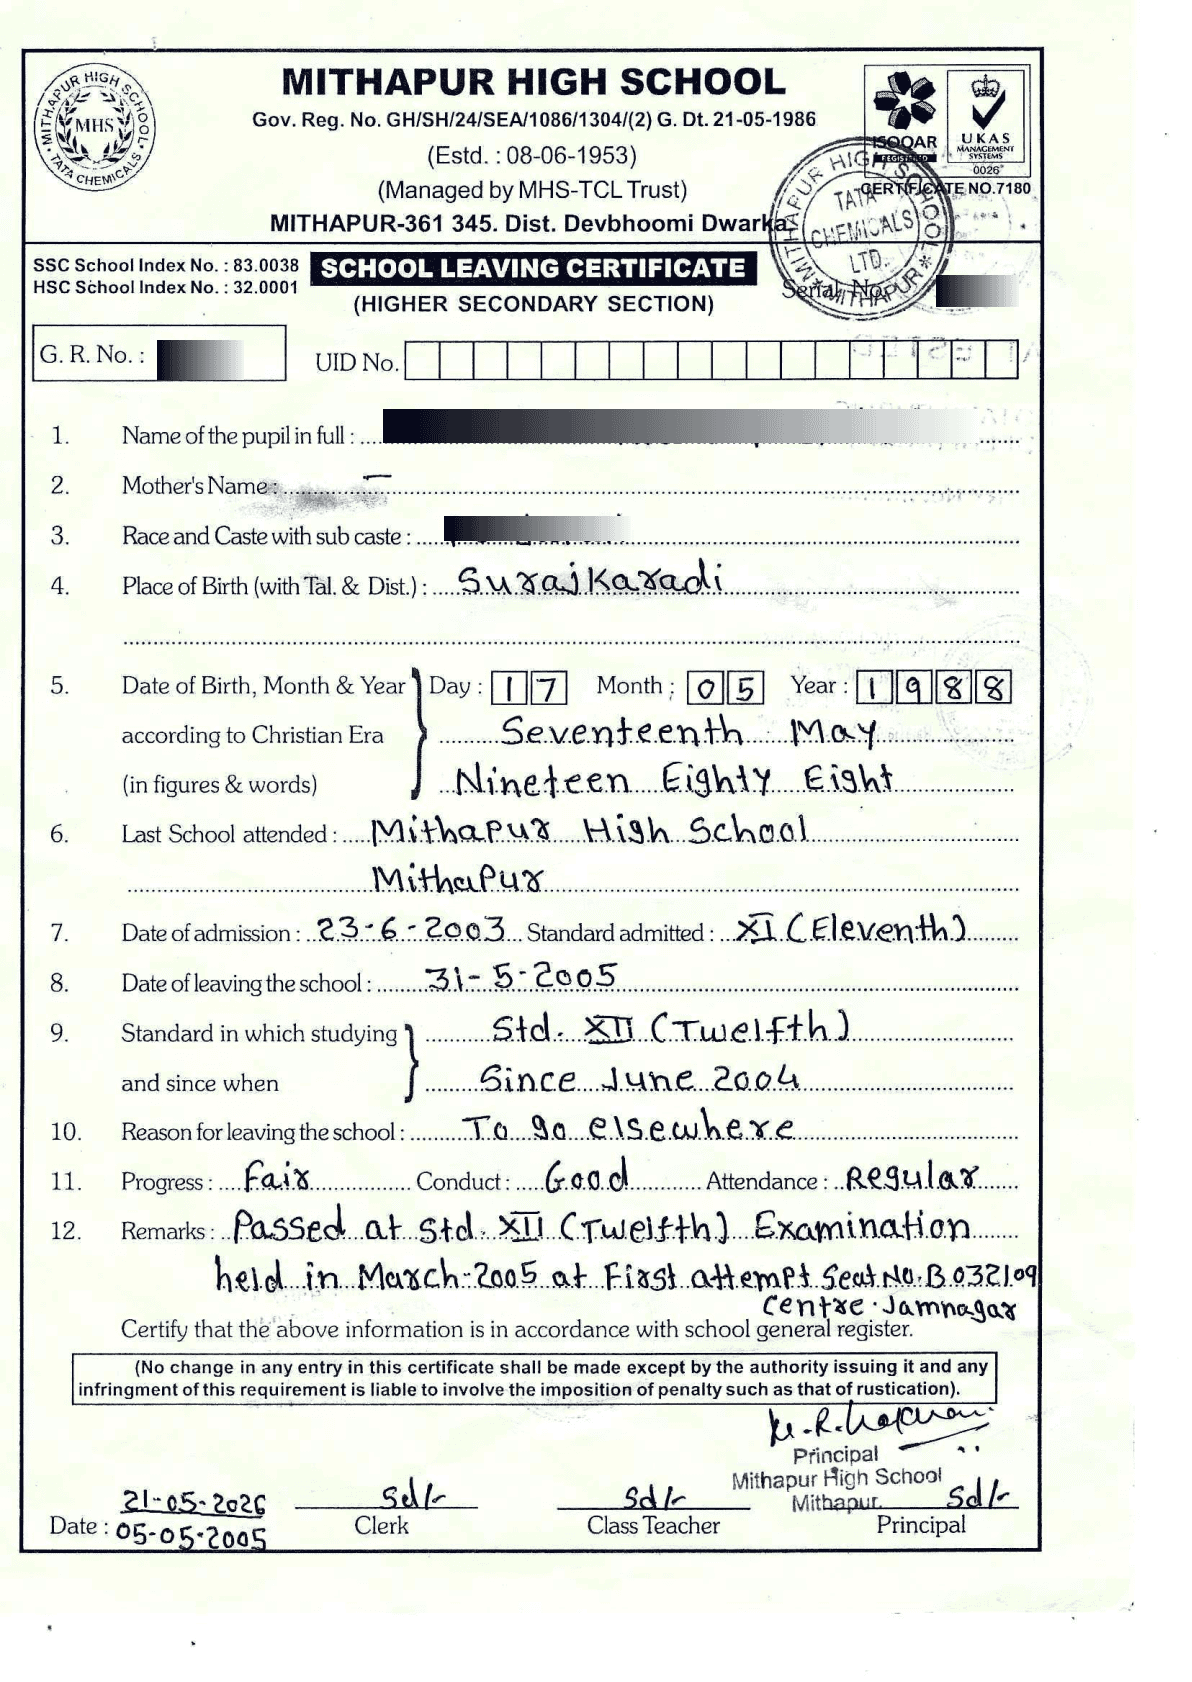 MITHAPUR HIGH SCHOOL
MITHAPUR HIGH SCHOOL
MHS
TATA CHEMICALS
Gov. Reg. No. GH/SH/24/SEA/1086/1304/(2) G. Dt. 21-05-1986
(Estd. : 08-06-1953)
(Managed by MHS-TCL Trust)
MITHAPUR-361 345. Dist. Devbhoomi Dwarka
ISOQAR
REGISTERED
UKAS
MANAGEMENT
SYSTEMS
0026
CERTIFICATE NO.7180
MITHAPUR HIGH SCHOOL
TATA
CHEMICALS
LTD.
MITHAPUR
SSC School Index No. : 83.0038
HSC School Index No. : 32.0001
SCHOOL LEAVING CERTIFICATE
(HIGHER SECONDARY SECTION)
Serial No.
G. R. No. :
UID No.
1. Name of the pupil in full :
2. Mother's Name : —
3. Race and Caste with sub caste :
4. Place of Birth (with Tal. & Dist.) : Surajkaradi
5. Date of Birth, Month & Year Day : 17 Month : 05 Year : 1988
according to Christian Era Seventeenth May
(in figures & words) Nineteen Eighty Eight
6. Last School attended : Mithapur High School
Mithapur
7. Date of admission : 23-6-2003 Standard admitted : XI (Eleventh)
8. Date of leaving the school : 31-5-2005
9. Standard in which studying Std. XII (Twelfth)
and since when Since June 2004
10. Reason for leaving the school : To go elsewhere
11. Progress : Fair Conduct : Good Attendance : Regular
12. Remarks : Passed at Std. XII (Twelfth) Examination
held in March-2005 at First attempt Seat No. B 032109
Centre. Jamnagar
Certify that the above information is in accordance with school general register.
(No change in any entry in this certificate shall be made except by the authority issuing it and any
infringment of this requirement is liable to involve the imposition of penalty such as that of rustication).
Principal
Mithapur High School
Mithapur.
21-05-2026 Sd/- Sd/- Sd/-
Date : 05-05-2005 Clerk Class Teacher Principal